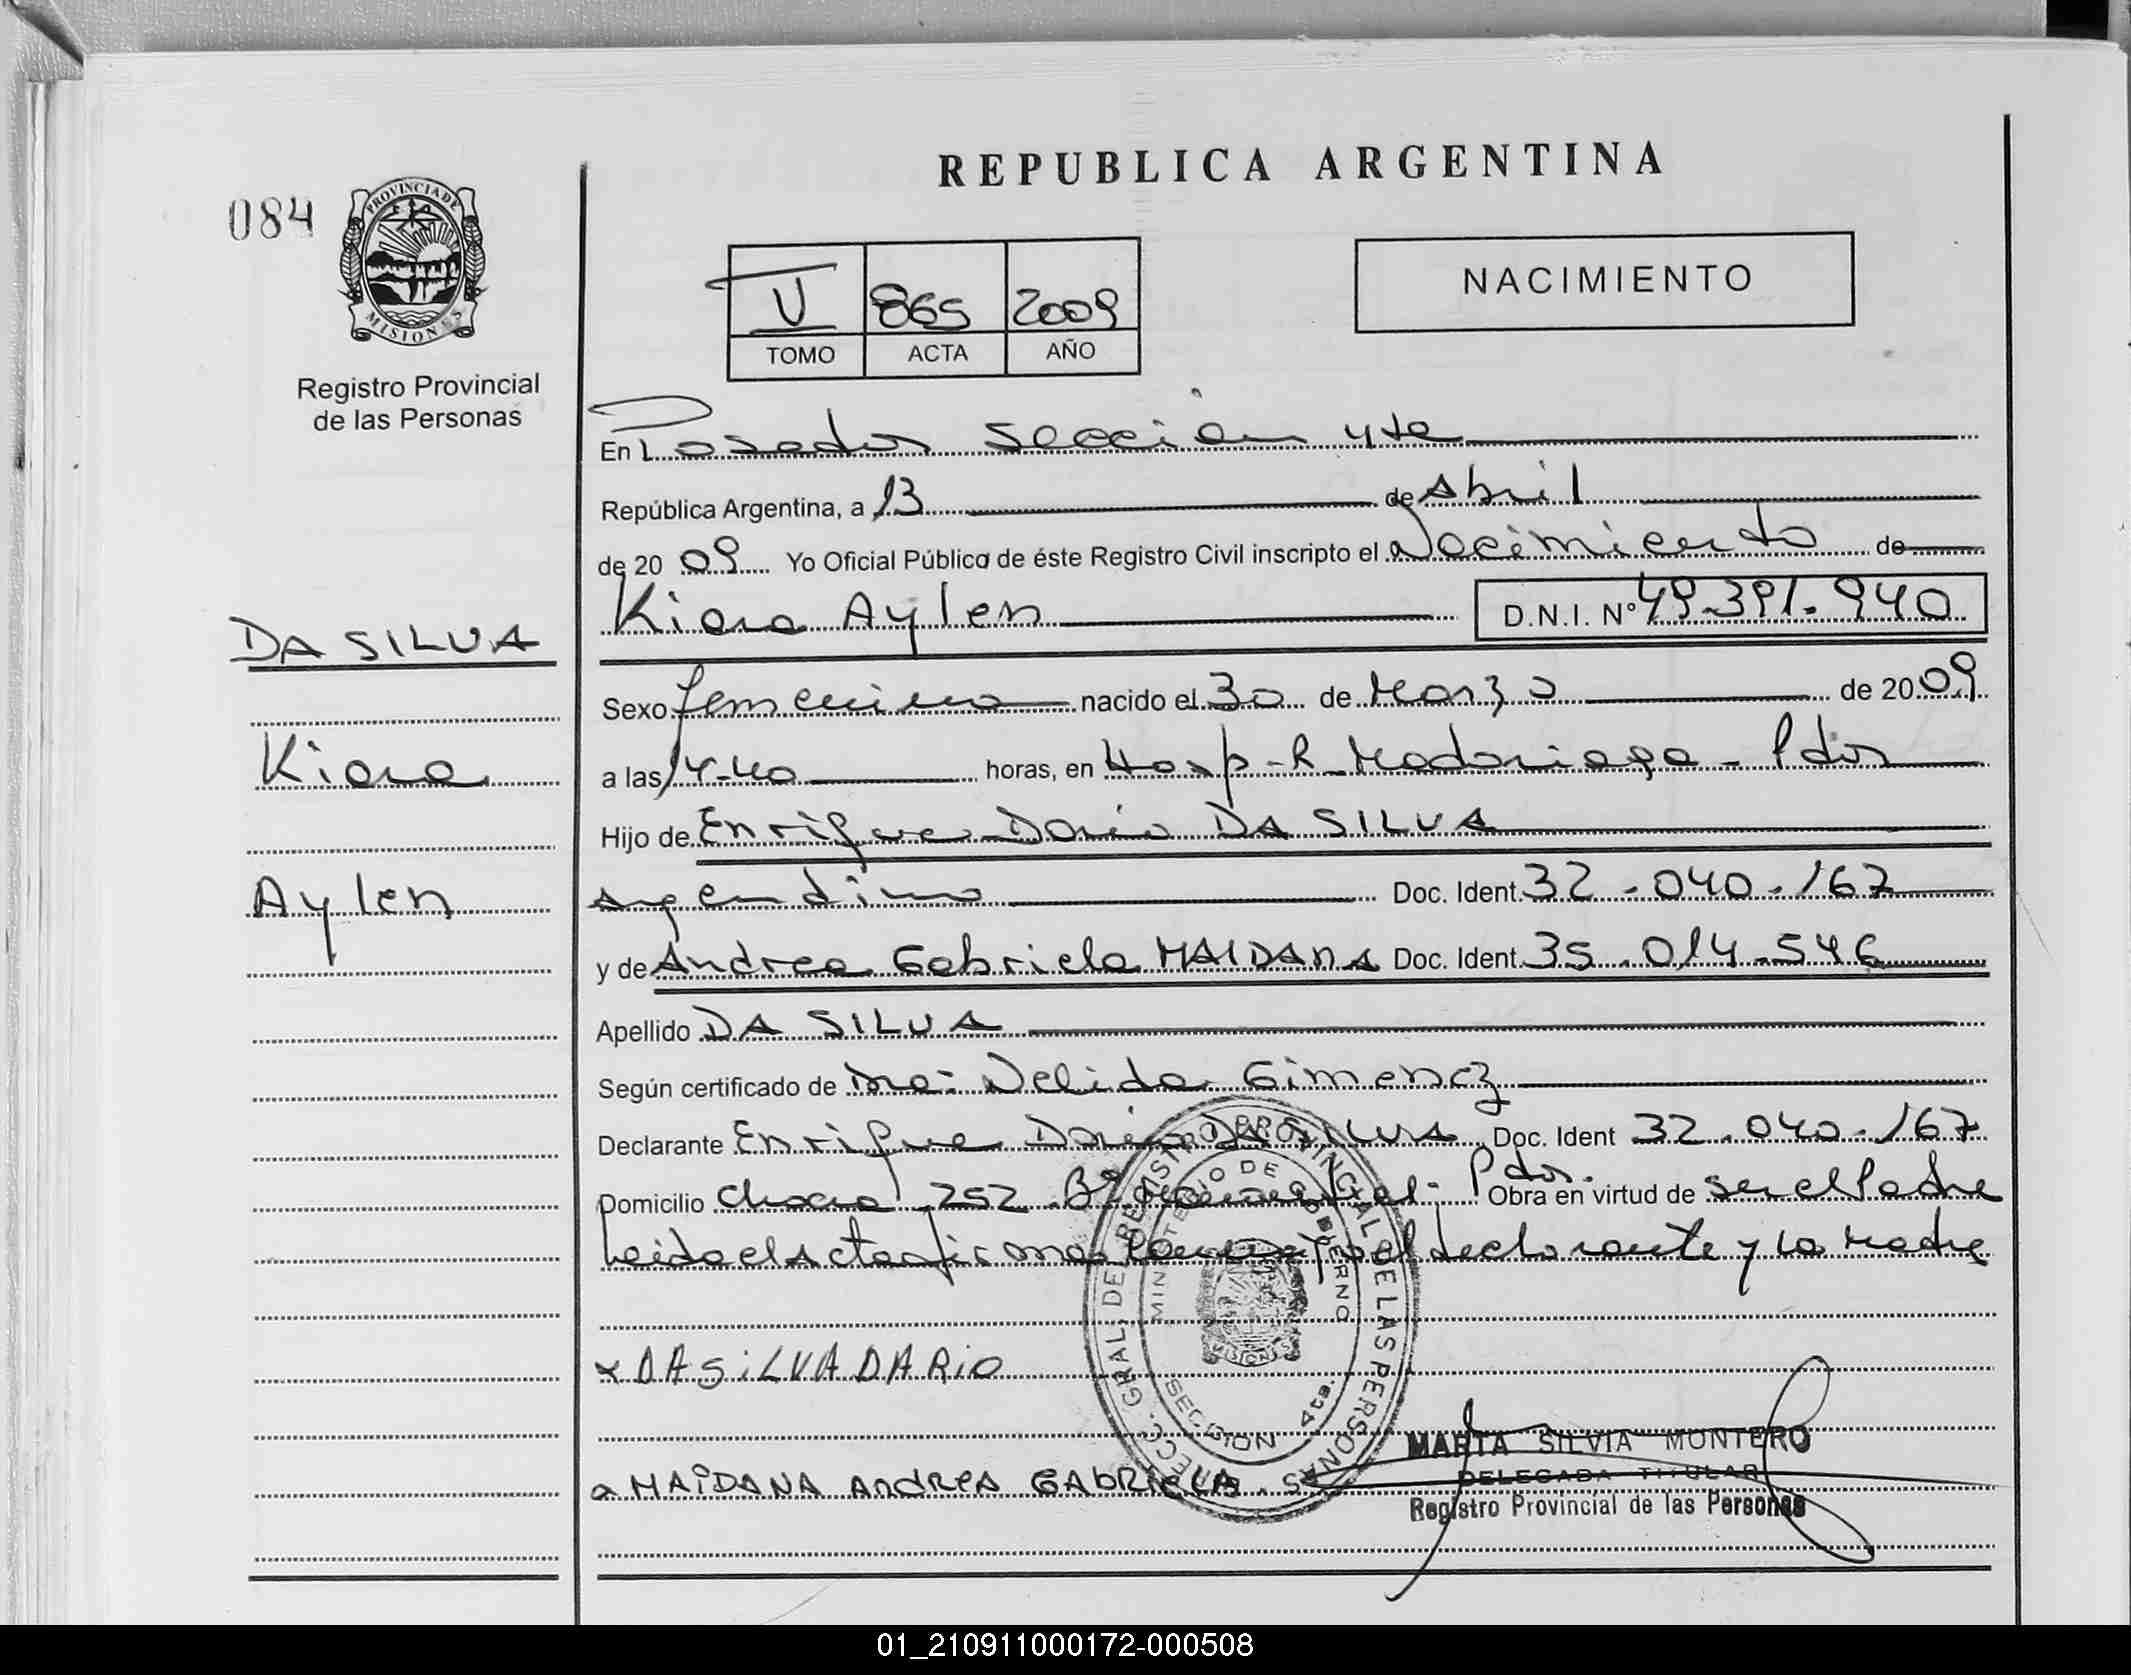 REPUBLICA ARGENTINA
084
PROVINCIA DE MISIONES
Registro Provincial
de las Personas
V 865 2009
TOMO ACTA AÑO
NACIMIENTO
En Posadas Sección 4ta
República Argentina, a 13 de Abril
de 2009 Yo Oficial Público de éste Registro Civil inscripto el Nacimiento de
Kiara Aylen D.N.I. Nº 49.391.940
DA SILVA
Kiara
Aylen
Sexo femenino nacido el 30 de Marzo de 2009
a las 14.40 horas, en Hosp - R Madariaga - Pdas
Hijo de Enrique Dario DA SILVA
Argentino Doc. Ident. 32.040.167
y de Andrea Gabriela MAIDANA Doc. Ident. 35.014.546
Apellido DA SILVA
Según certificado de Dra: Nelida Gimenez
Declarante Enrique Dario DA SILVA Doc. Ident 32.040.167
Domicilio 252 Bº Pdas. Obra en virtud de ser el Padre
Leida el Acta firman el declarante y la Madre
x DA SiLVA DARiO
MAiDANA AndREA GAbRiELA.
DIRECC. GRAL. DE REGISTRO PROVINCIAL DE LAS PERSONAS
MINISTERIO DE GOBIERNO
MISIONES
SECCION 4ta.
MARTA SILVIA MONTERO
DELEGADA TITULAR
Registro Provincial de las Personas
01_210911000172-000508